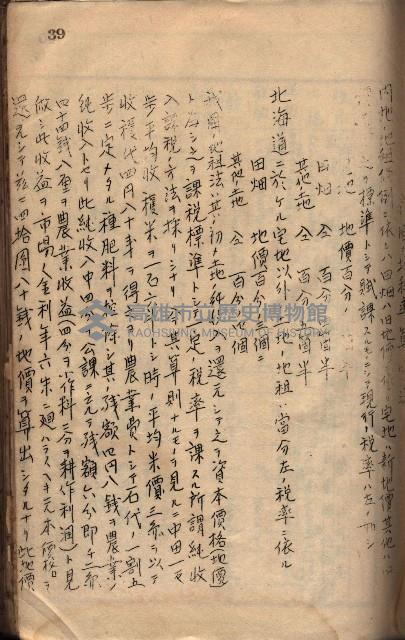 39
内地ノ地租ノ例ニ依ハ田畑ハ旧地價ニ宅地ハ新地價其他ハ
標準トシテ賦課スルモニシテ現行ノ税率ハ左ノ如シ
地價百分ノ
田畑 仝 百分ノ四箇半
其他土地 仝 百分ノ五箇半
北海道ニ於ケル宅地以外ノ土地ノ地租ハ當分左ノ税率ニ依ル
田畑 地價百分ノ三個二
其他土地 仝 百分ノ四個
我國ノ地租法ハ其ノ初メ土地純收入ヲ還元シテ之ヲ資本價格(地價)
トナシ之ヲ課税標準トシテ一定ノ税率ヲ課スル所謂純收
入課税ノ方法ヲ採リシナリ其算則ナルモノヲ見ルニ中田一反
歩平均收穫米ヲ一石六斗トシ時ノ平均米價三円ヲ以テ
收穫代四円八十銭ヲ得之ヨリ農業費トシテ右代ノ一割五
歩ニ定メタル種肥料ヲ控除シ其ノ残額四円八銭ヲ農業ノ
純收入トセリ此純收入中四分ヲ公課ニ充テ残額六分即チ二円
四十四銭八厘ヲ農業收益四分ヲ小作料二分ヲ耕作利潤)ト見
做シ此收益ヲ市場ノ金利年六朱ニ廻ハラスヘキ元本價格ヲ
還元シテ茲ニ四拾円八十銭ノ地價ヲ算出シタルナリ此地價
高雄市立歷史博物館
KAOHSIUNG MUSEUM OF HISTORY